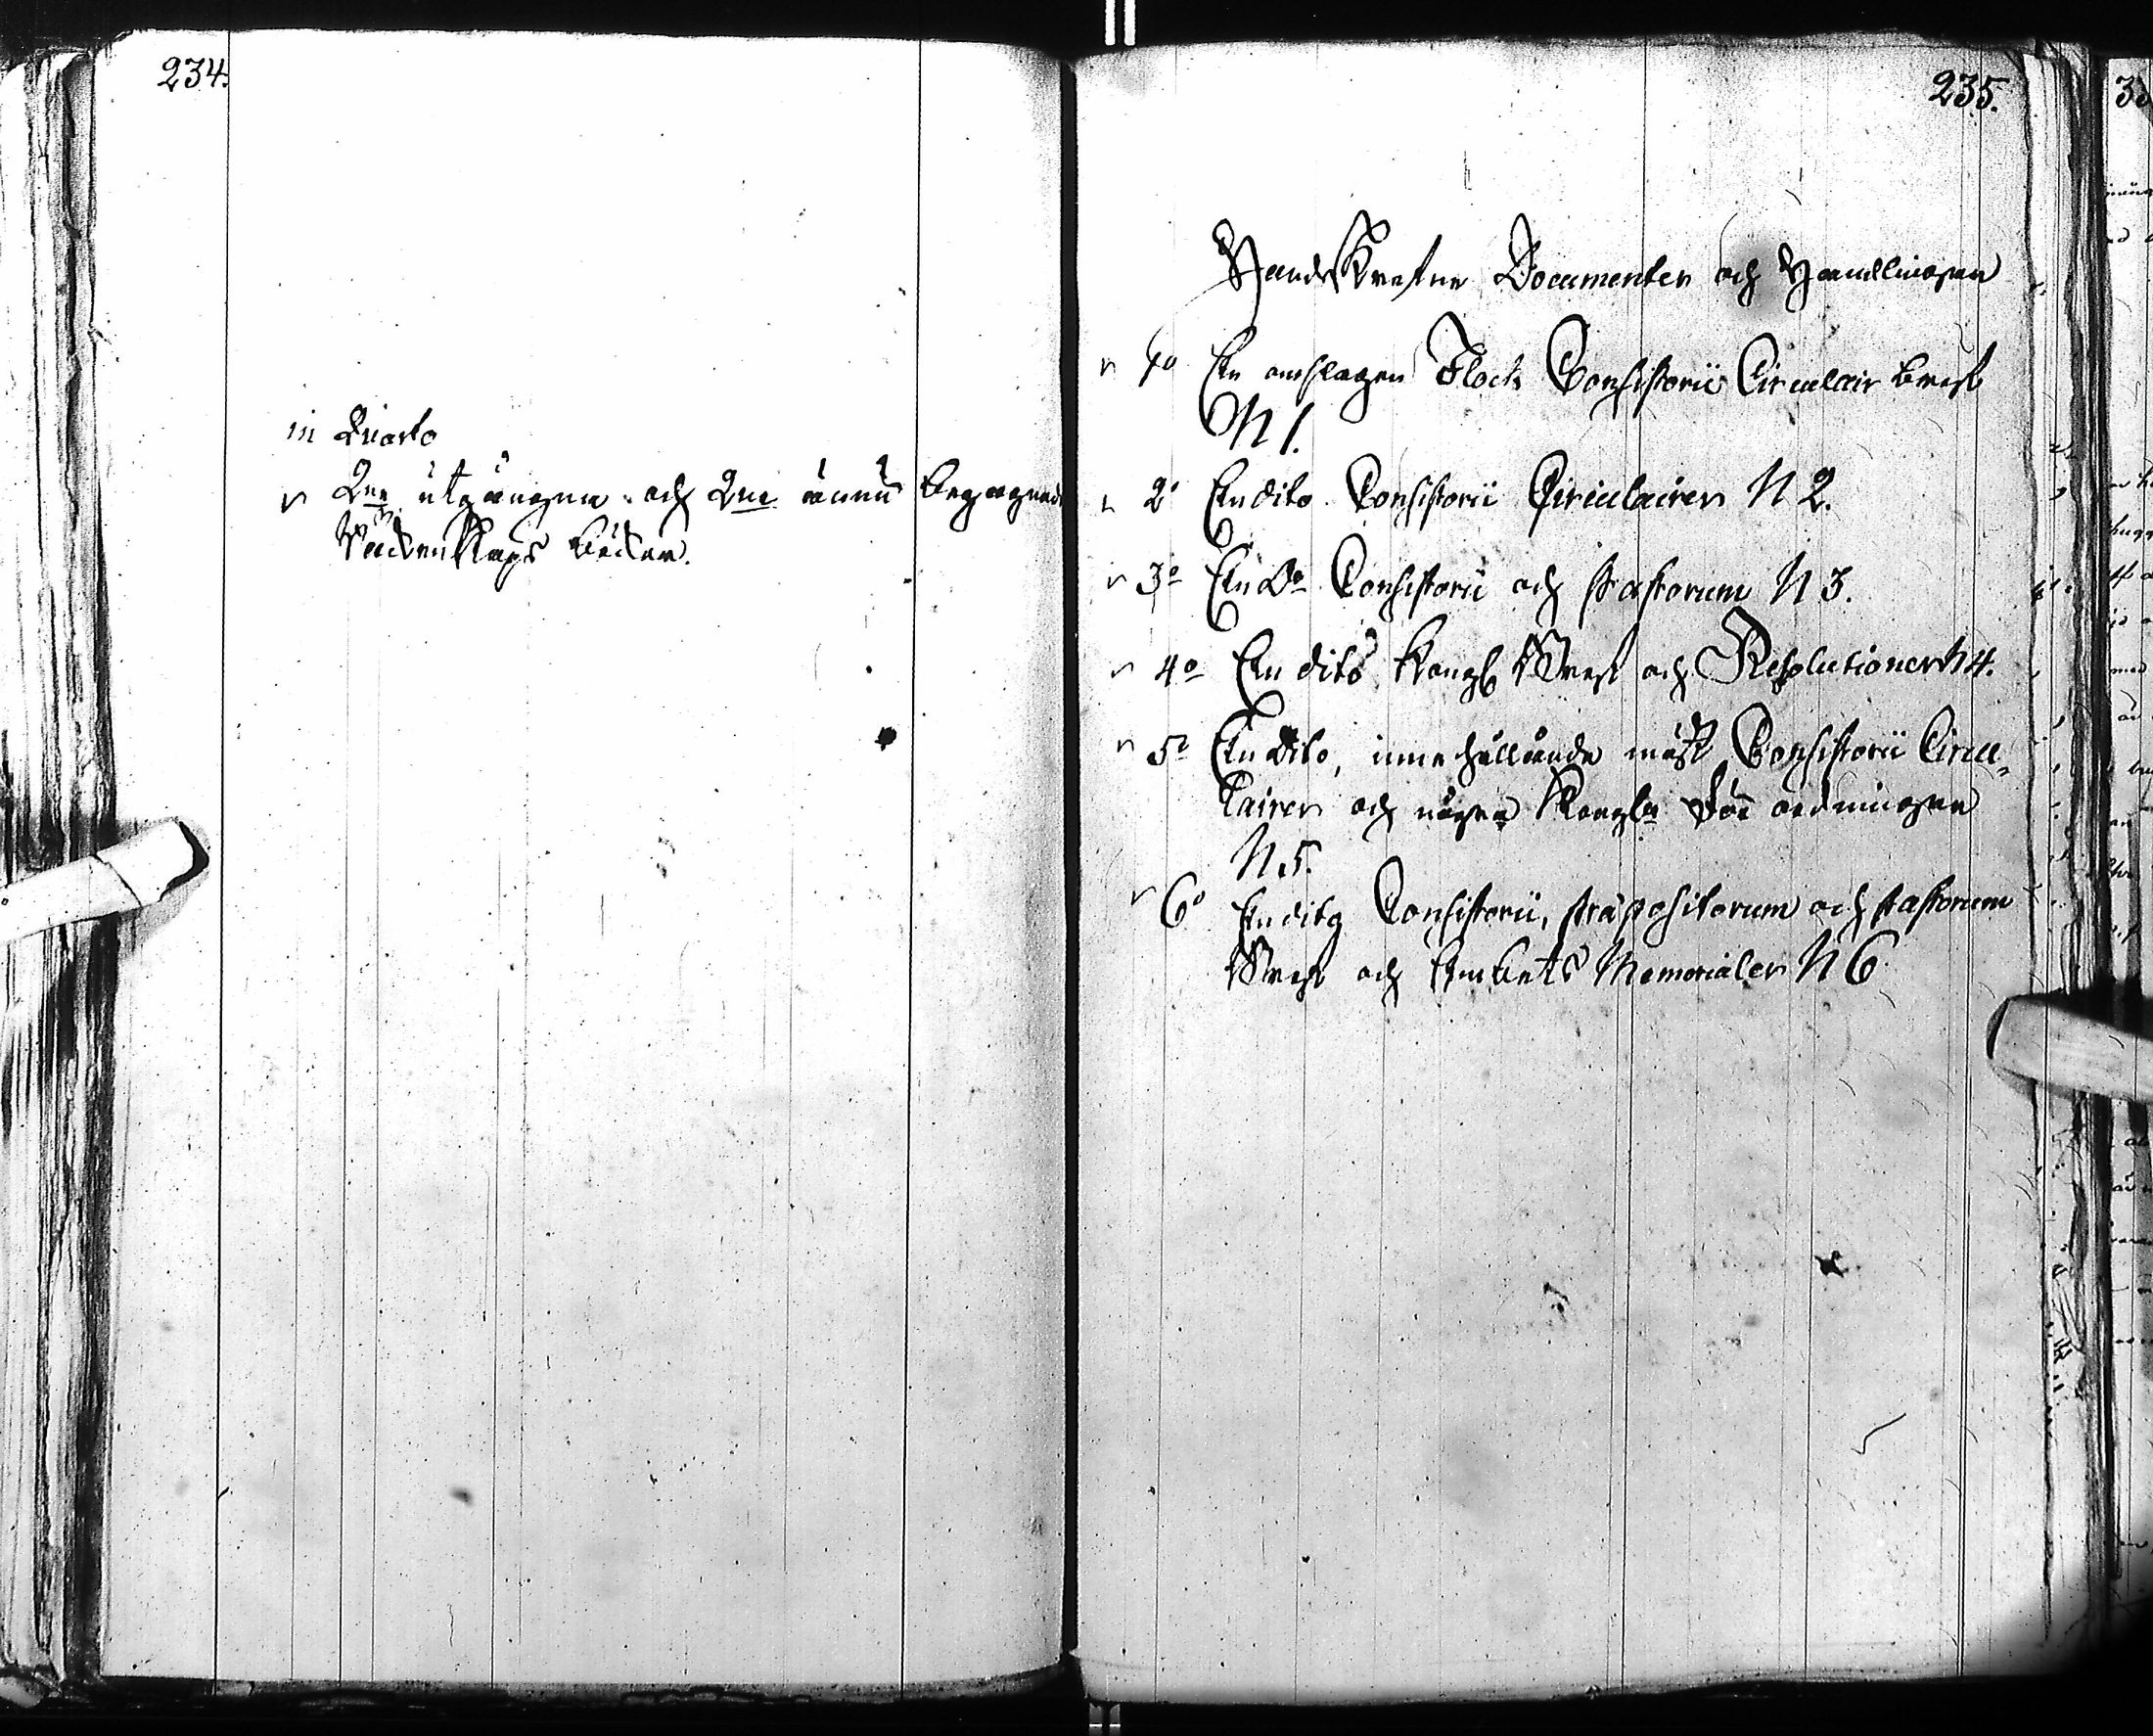 234.
in Quarto
2ne utgångna och 2ne ännu begagnade
Räckenskaps Böcker.
235.
Handskrefne Documenter och Handlingar
1o En omslagen Flock Consistorii Circulair bref
N 1.
2o En dito Consistorii Circulairer N 2.
3o En Do Consistorii och Pastorum N 3.
4o En dito Kongl Bref och Resolutioner N 4.
5o En Dito, innehållande mäst Consistorii Circu-
lairer och några Kongla Förordningar
N. 5.
6o En dito Consistorii, Præpositorum och Pastorum
Bref och Embets Memorialer N 6